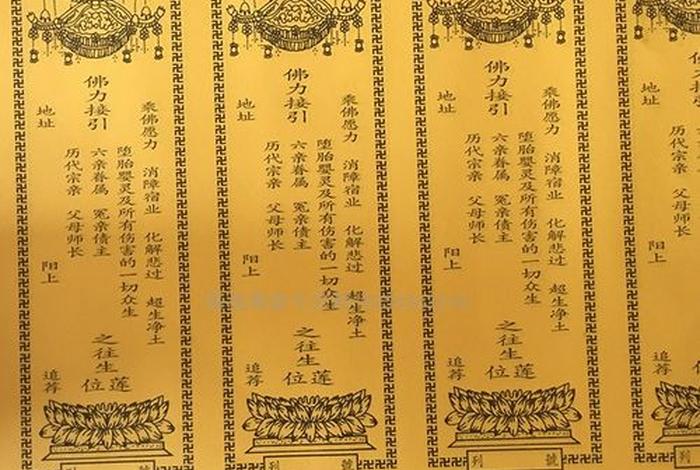 乘佛愿力 消障宿业 化解悲过 超生净土
堕胎婴灵及所有伤害的一切众生
佛力接引
六亲眷属 冤亲债主
之往生莲位
历代宗亲 父母师长
地址
阳上
追荐
列 號
乘佛愿力 消障宿业 化解悲过 超生净土
堕胎婴灵及所有伤害的一切众生
佛力接引
六亲眷属 冤亲债主
之往生莲位
历代宗亲 父母师长
地址
阳上
追荐
列 號
乘佛愿力 消障宿业 化解悲过 超生净土
堕胎婴灵及所有伤害的一切众生
佛力接引
六亲眷属 冤亲债主
之往生莲位
历代宗亲 父母师长
地址
阳上
追荐
列 號
历代宗亲 父母师长
地址
阳上
追荐
列